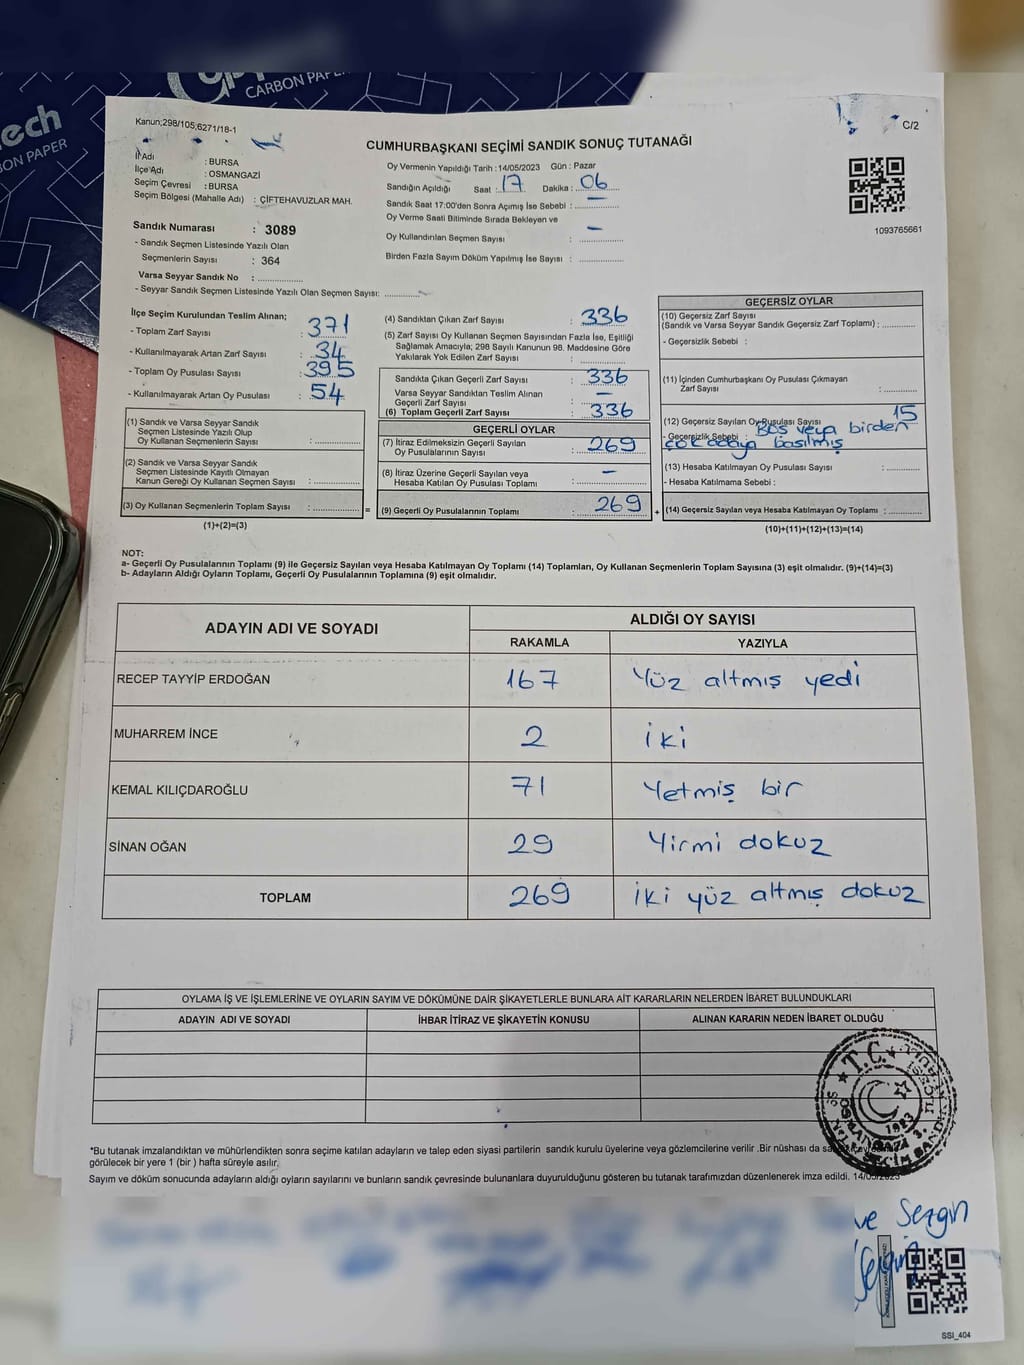 CARBON PAPER
ech
ON PAPER
Kanun;298/105,6271/18-1
C/2
CUMHURBAŞKANI SEÇİMİ SANDIK SONUÇ TUTANAĞI
İl Adı : BURSA
İlçe Adı : OSMANGAZİ
Seçim Çevresi : BURSA
Seçim Bölgesi (Mahalle Adı) : ÇİFTEHAVUZLAR MAH.
Sandık Numarası : 3089
- Sandık Seçmen Listesinde Yazılı Olan
Seçmenlerin Sayısı : 364
Varsa Seyyar Sandık No :
- Seyyar Sandık Seçmen Listesinde Yazılı Olan Seçmen Sayısı:
Oy Vermenin Yapıldığı Tarih : 14/05/2023 Gün : Pazar
Sandığın Açıldığı Saat : 17 Dakika : 06
Sandık Saat 17:00'den Sonra Açımış İse Sebebi : —
Oy Verme Saati Bitiminde Sırada Bekleyen ve
Oy Kullandırılan Seçmen Sayısı : —
Birden Fazla Sayım Döküm Yapılmış İse Sayısı :
1093765661
İlçe Seçim Kurulundan Teslim Alınan;
- Toplam Zarf Sayısı : 371
- Kullanılmayarak Artan Zarf Sayısı : 34
- Toplam Oy Pusulası Sayısı : 395
- Kullanılmayarak Artan Oy Pusulası : 54
(1) Sandık ve Varsa Seyyar Sandık
Seçmen Listesinde Yazılı Olup
Oy Kullanan Seçmenlerin Sayısı :
(2) Sandık ve Varsa Seyyar Sandık
Seçmen Listesinde Kayıtlı Olmayan
Kanun Gereği Oy Kullanan Seçmen Sayısı :
(3) Oy Kullanan Seçmenlerin Toplam Sayısı : =
(1)+(2)=(3)
(4) Sandıktan Çıkan Zarf Sayısı : 336
(5) Zarf Sayısı Oy Kullanan Seçmen Sayısından Fazla İse, Eşitliği
Sağlamak Amacıyla; 298 Sayılı Kanunun 98. Maddesine Göre
Yakılarak Yok Edilen Zarf Sayısı :
Sandıkta Çıkan Geçerli Zarf Sayısı : 336
Varsa Seyyar Sandıktan Teslim Alınan
Geçerli Zarf Sayısı : —
(6) Toplam Geçerli Zarf Sayısı : 336
GEÇERLİ OYLAR
(7) İtiraz Edilmeksizin Geçerli Sayılan
Oy Pusulalarının Sayısı : 269
(8) İtiraz Üzerine Geçerli Sayılan veya
Hesaba Katılan Oy Pusulası Toplamı : —
(9) Geçerli Oy Pusulalarının Toplamı : 269 +
GEÇERSİZ OYLAR
(10) Geçersiz Zarf Sayısı
(Sandık ve Varsa Seyyar Sandık Geçersiz Zarf Toplamı) :
- Geçersizlik Sebebi :
(11) İçinden Cumhurbaşkanı Oy Pusulası Çıkmayan
Zarf Sayısı :
(12) Geçersiz Sayılan Oy Pusulası Sayısı 15
- Geçersizlik Sebebi : Boş veya birden
çok adaya basılmış
(13) Hesaba Katılmayan Oy Pusulası Sayısı :
- Hesaba Katılmama Sebebi :
(14) Geçersiz Sayılan veya Hesaba Katılmayan Oy Toplamı :
(10)+(11)+(12)+(13)=(14)
NOT:
a- Geçerli Oy Pusulalarının Toplamı (9) ile Geçersiz Sayılan veya Hesaba Katılmayan Oy Toplamı (14) Toplamları, Oy Kullanan Seçmenlerin Toplam Sayısına (3) eşit olmalıdır. (9)+(14)=(3)
b- Adayların Aldığı Oyların Toplamı, Geçerli Oy Pusulalarının Toplamına (9) eşit olmalıdır.
ADAYIN ADI VE SOYADI
ALDIĞI OY SAYISI
RAKAMLA YAZIYLA
RECEP TAYYİP ERDOĞAN 167 Yüz altmış yedi
MUHARREM İNCE 2 iki
KEMAL KILIÇDAROĞLU 71 Yetmiş bir
SİNAN OĞAN 29 Yirmi dokuz
TOPLAM 269 iki yüz altmış dokuz
OYLAMA İŞ VE İŞLEMLERİNE VE OYLARIN SAYIM VE DÖKÜMÜNE DAİR ŞİKAYETLERLE BUNLARA AİT KARARLARIN NELERDEN İBARET BULUNDUKLARI
ADAYIN ADI VE SOYADI İHBAR İTİRAZ VE ŞİKAYETİN KONUSU ALINAN KARARIN NEDEN İBARET OLDUĞU
T.C.
1923
*Bu tutanak imzalandıktan ve mühürlendikten sonra seçime katılan adayların ve talep eden siyasi partilerin sandık kurulu üyelerine veya gözlemcilerine verilir .Bir nüshası da
görülecek bir yere 1 (bir ) hafta süreyle asılır.
Sayım ve döküm sonucunda adayların aldığı oyların sayılarını ve bunların sandık çevresinde bulunanlara duyurulduğunu gösteren bu tutanak tarafımızdan düzenlenerek imza edildi. 14/05/2023
ve Sezgin
SSI_404